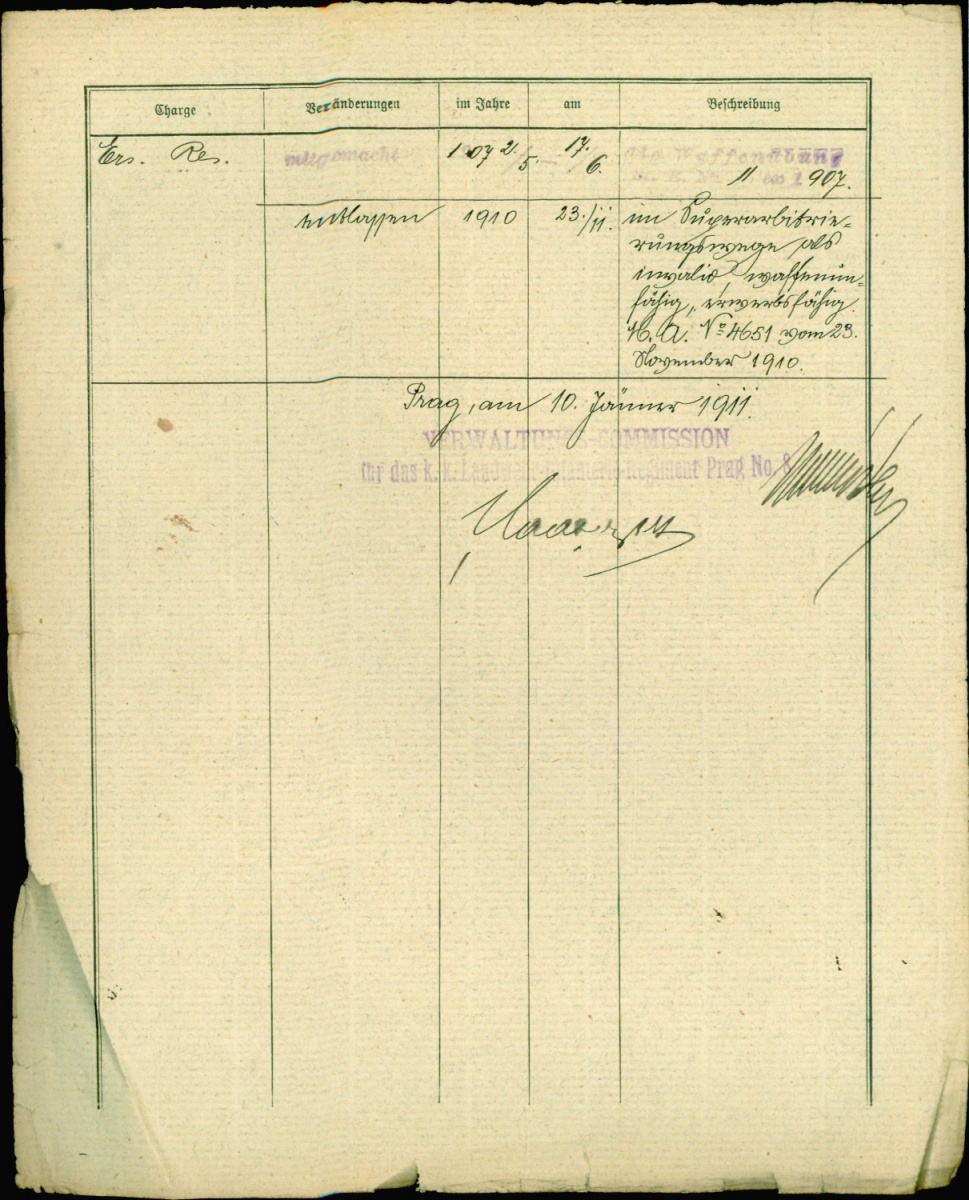 Charge Veränderungen im Jahre am Beschreibung
Ers. Res. mitgemacht 1907 21/5 – 17/6. Waffenübung
11 907.
entlassen 1910 23./11. im Superarbitrie-
rungswege als
invalid, waffenun-
fähig, erwerbsfähig.
M. A. No 4651 vom 23.
November 1910.
Prag, am 10. Jänner 1911.
VERWALTUNGS-COMMISSION
für das k. k. Landwehr-Infanterie-Regiment Prag No. 8